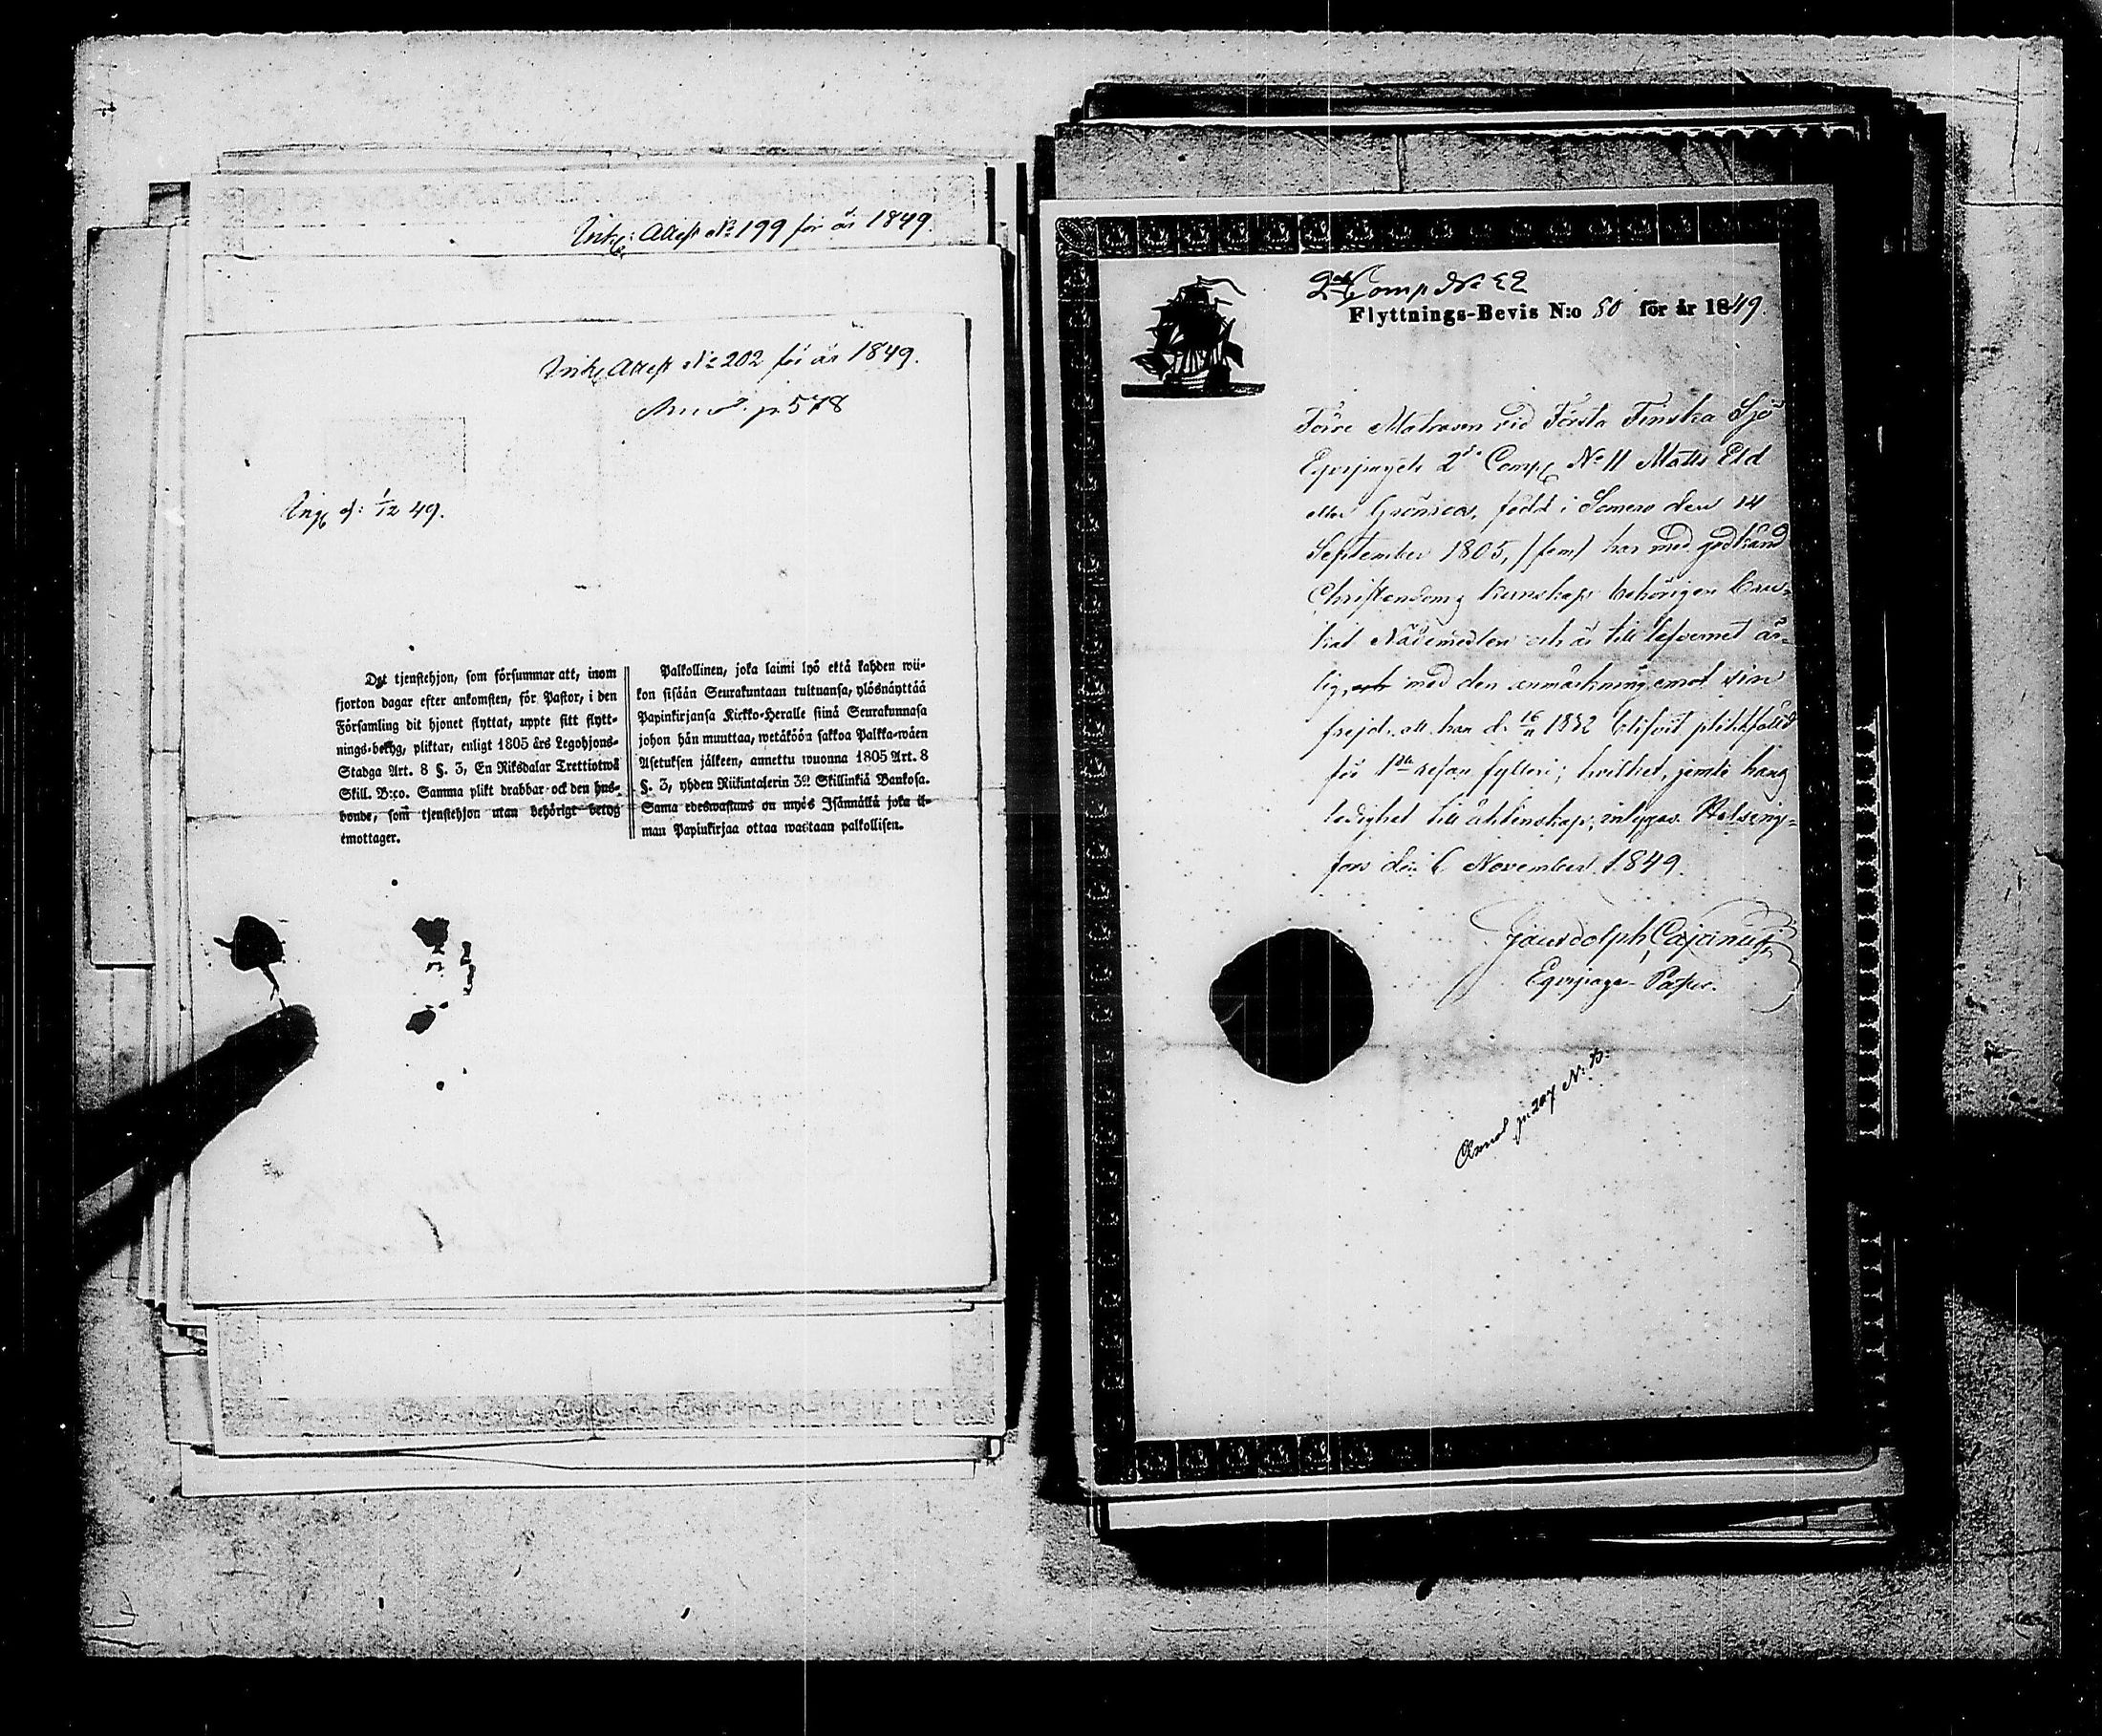 Ink. Attest No 199 för år 1849.
Ink. Attest No 202 för år 1849.
p. 578
Ing. d: 1/12 49.
Det tjenstehjon, som försummar att, inom
fjorton dagar efter ankomsten, för Pastor, i den
Församling dit hjonet flyttat, uppte sitt flytt-
nings-betyg, pliktar, enligt 1805 års Legohjons-
Stadga Art. 8 §. 3, En Riksdalar Trettiotwå
Skill. B:co. Samma plikt drabbar ock den hus-
bonde, som tjenstehjon utan behörigt betyg
emottager.
Palkollinen, joka laimi lyö että kahden wii-
kon sisään Seurakuntaan tultuansa, ylösnäyttää
Papinkirjansa Kirkko-Heralle siinä Seurakunnasa
johon hän muuttaa, wetäköön sakkoa Palkka-wäen
Asetuksen jälkeen, annettu wuonna 1805 Art. 8
§. 3, yhden Riikintalerin 32 Skillinkiä Bankosa.
Sama edeswastuus on myös Isännällä joka il-
man Papinkirjaa ottaa wastaan palkollisen.
2dra Comp No 22
Flyttnings-Bevis N:o 50 för år 1849.
Förre Matrosen vid Första Finska Sjö
Equipagets 2dra Comp. No 11 Matts Eld
eller Grönroos, född i Somero den 14
September 1805, /fem/ har med godkänd
Christendoms kunskap behörigen bru-
kat Nådemedlen och är till lefvernet är-
lig, och med den anmärkning emot sin
frejd, att han d. 16/11 1832 blifvit pliktfälld
för 1sta resan fylleri; hvilket, jemte hans
ledighet till äktenskap, intygas. Helsing-
fors den 6 November 1849.
Cajanus,
Equipage-Pastor.
Annot p. 207 N: B: